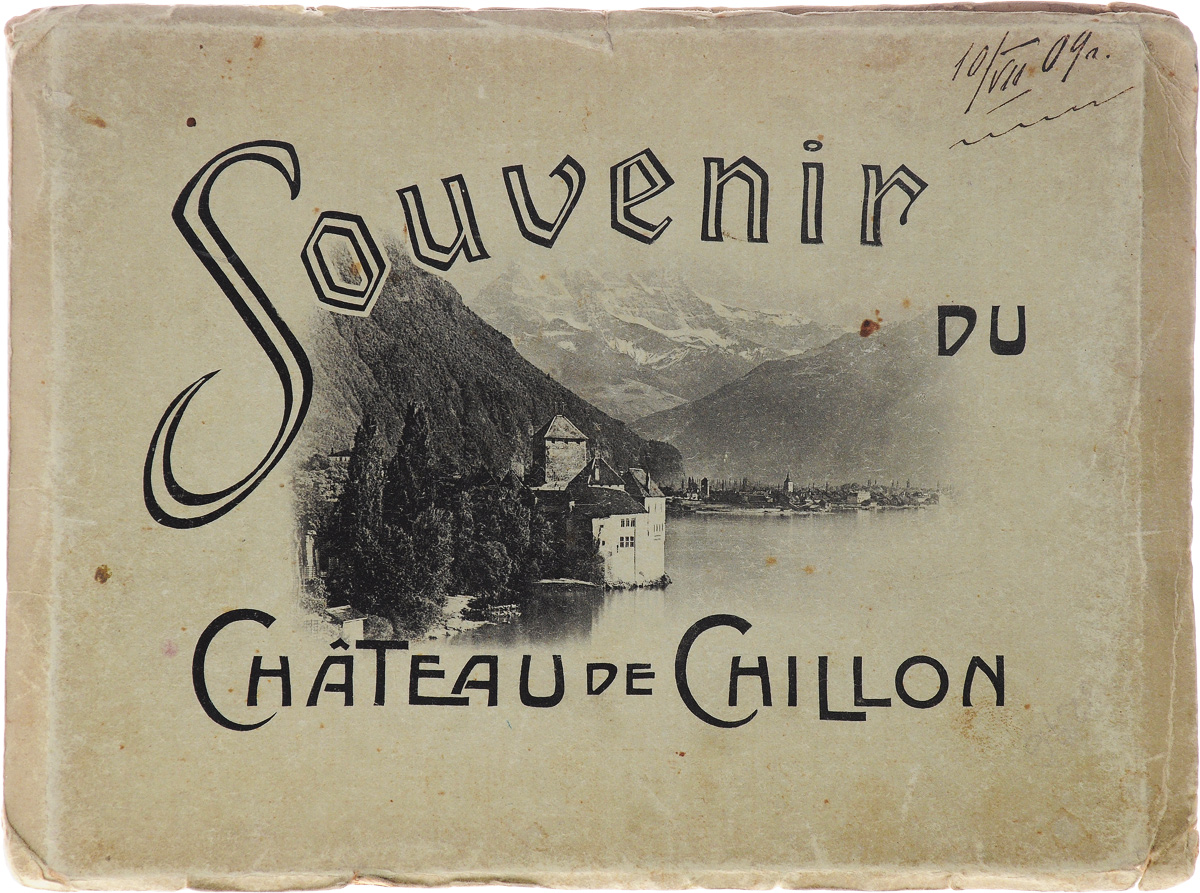 10/VII 09 г.
Souvenir
DU
CHÂTEAU DE CHILLON